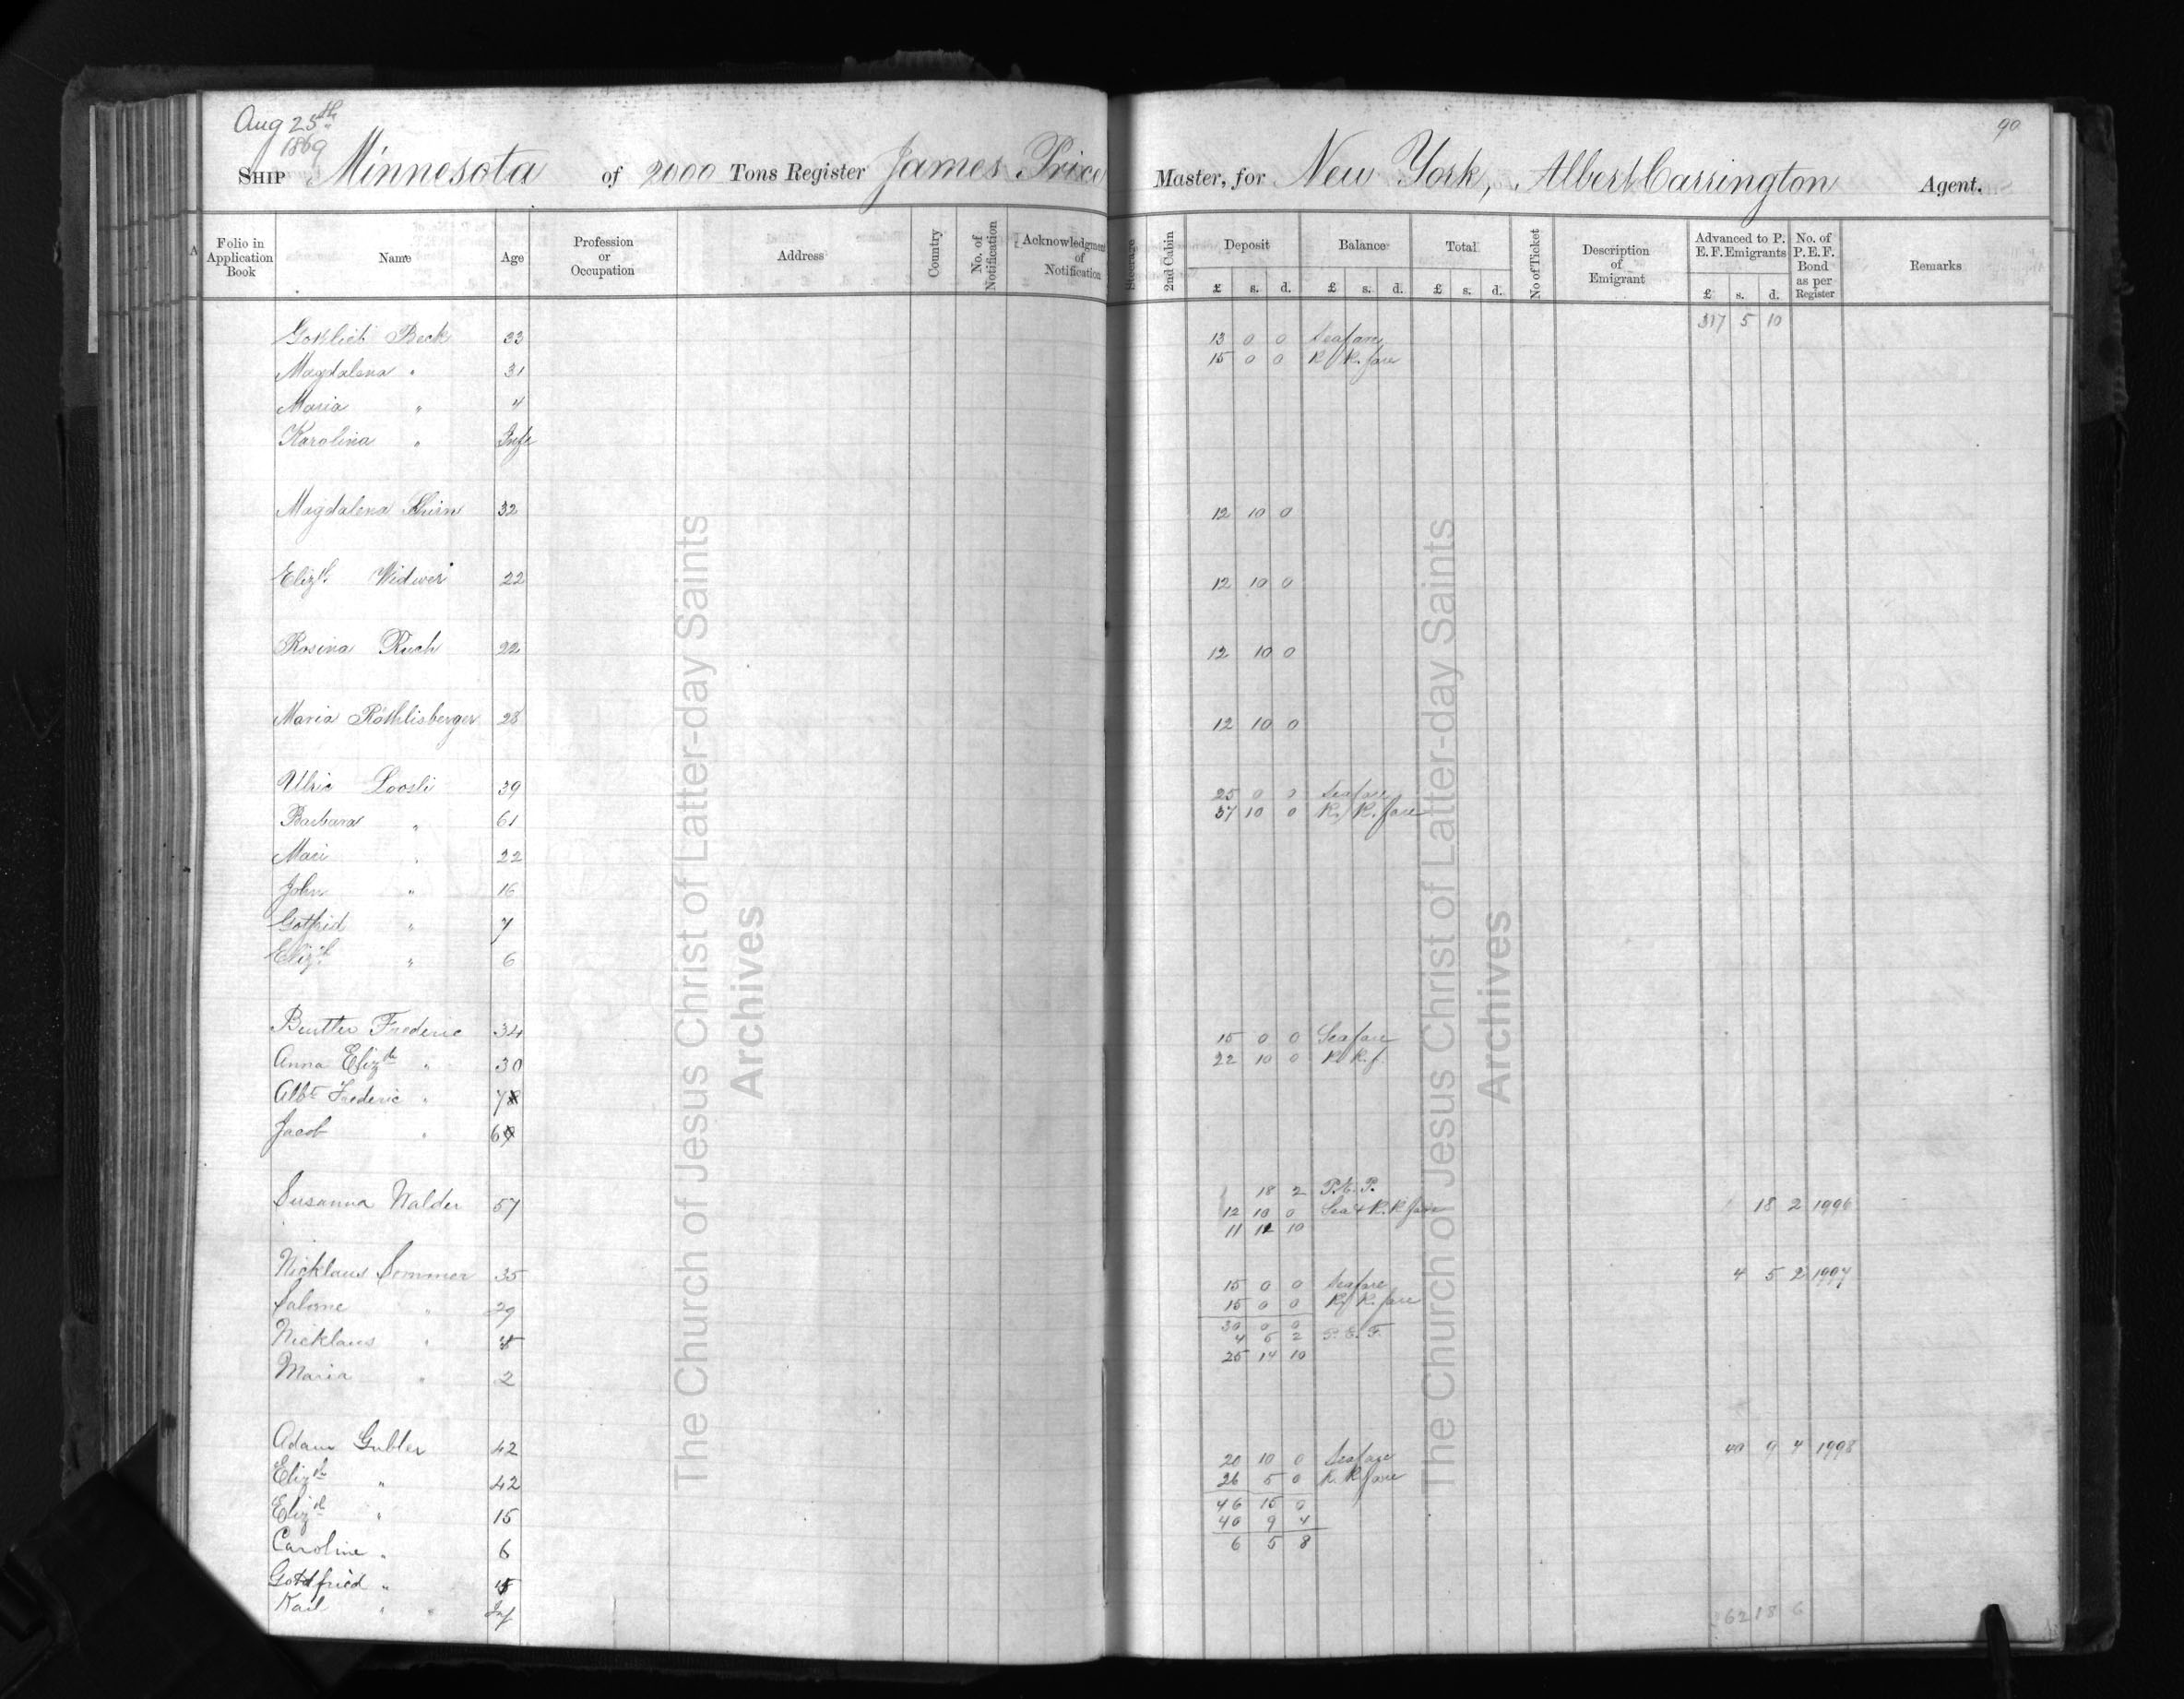 Aug 25th
1869
90
SHIP Minnesota of 2000 Tons Register James Price Master, for New York, Albert Carrington Agent.
A Folio in Application Book Name Age Profession or Occupation Address Country No. of Notification Acknowledgment of Notification Steerage 2nd Cabin Deposit Balance Total No of Ticket Description of Emigrant Advanced to P. E. F. Emigrants No. of P. E. F. Bond as per Register Remarks
£ s. d. £ s. d. £ s. d. £ s. d.
317 5 10
Gottlieb Beck 33 13 0 0 Seafare
15 0 0 R. R. fare
Magdalena " 31
Maria " 4
Karolina " Inft
Magdalena 32 12 10 0
Elizth Widmer 22 12 10 0
Rosina Ruch 22 12 10 0
Maria Röthlisberger 28 12 10 0
Ulric Loosli 39 25 0 0 Seafare
37 10 0 R. R. fare
Barbara " 61
Mari " 22
John " 16
Gotfrid " 7
Elizth " 6
Frederic 34 15 0 0 Seafare
22 10 0 R. R. f.
Anna Elizth " 30
Albt Frederic " 7
Jacob " 6
1 18 2 P.E.F.
Susanna Walder 57 12 10 0 Sea & R. R. fare 18 2 1996
11 12 10
Nicklaus Sommer 35 15 0 0 Seafare 4 5 2 1997
Salome " 29 15 0 0 R. R. fare
30 0 0
Nicklaus " 4 5 2 P. E. F.
25 14 10
Maria " 2
Adam Gubler 42 20 10 0 Seafare 40 9 4 1998
Elizth " 42 26 5 0 R. R fare
46 15 0
Elizth " 15 40 9 4
Caroline " 6 6 5 8
Gottfried "
Karl " " Inf
262 18 6
The Church of Jesus Christ of Latter-day Saints
Archives
The Church of Jesus Christ of Latter-day Saints
Archives